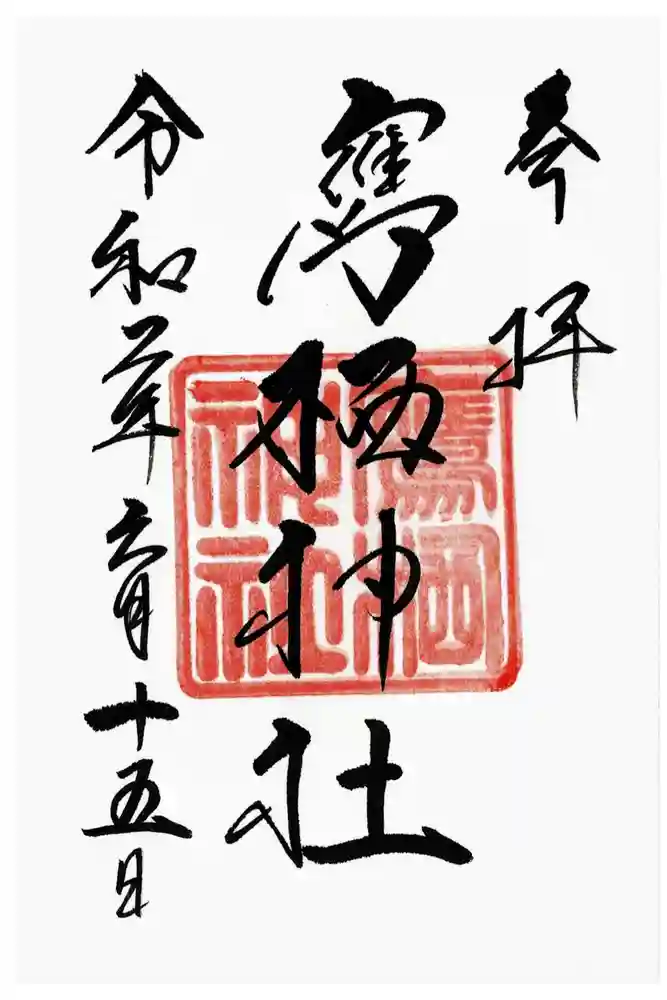 奉拝
鷹栖神社
鷹栖
神社
令和二年六月十五日